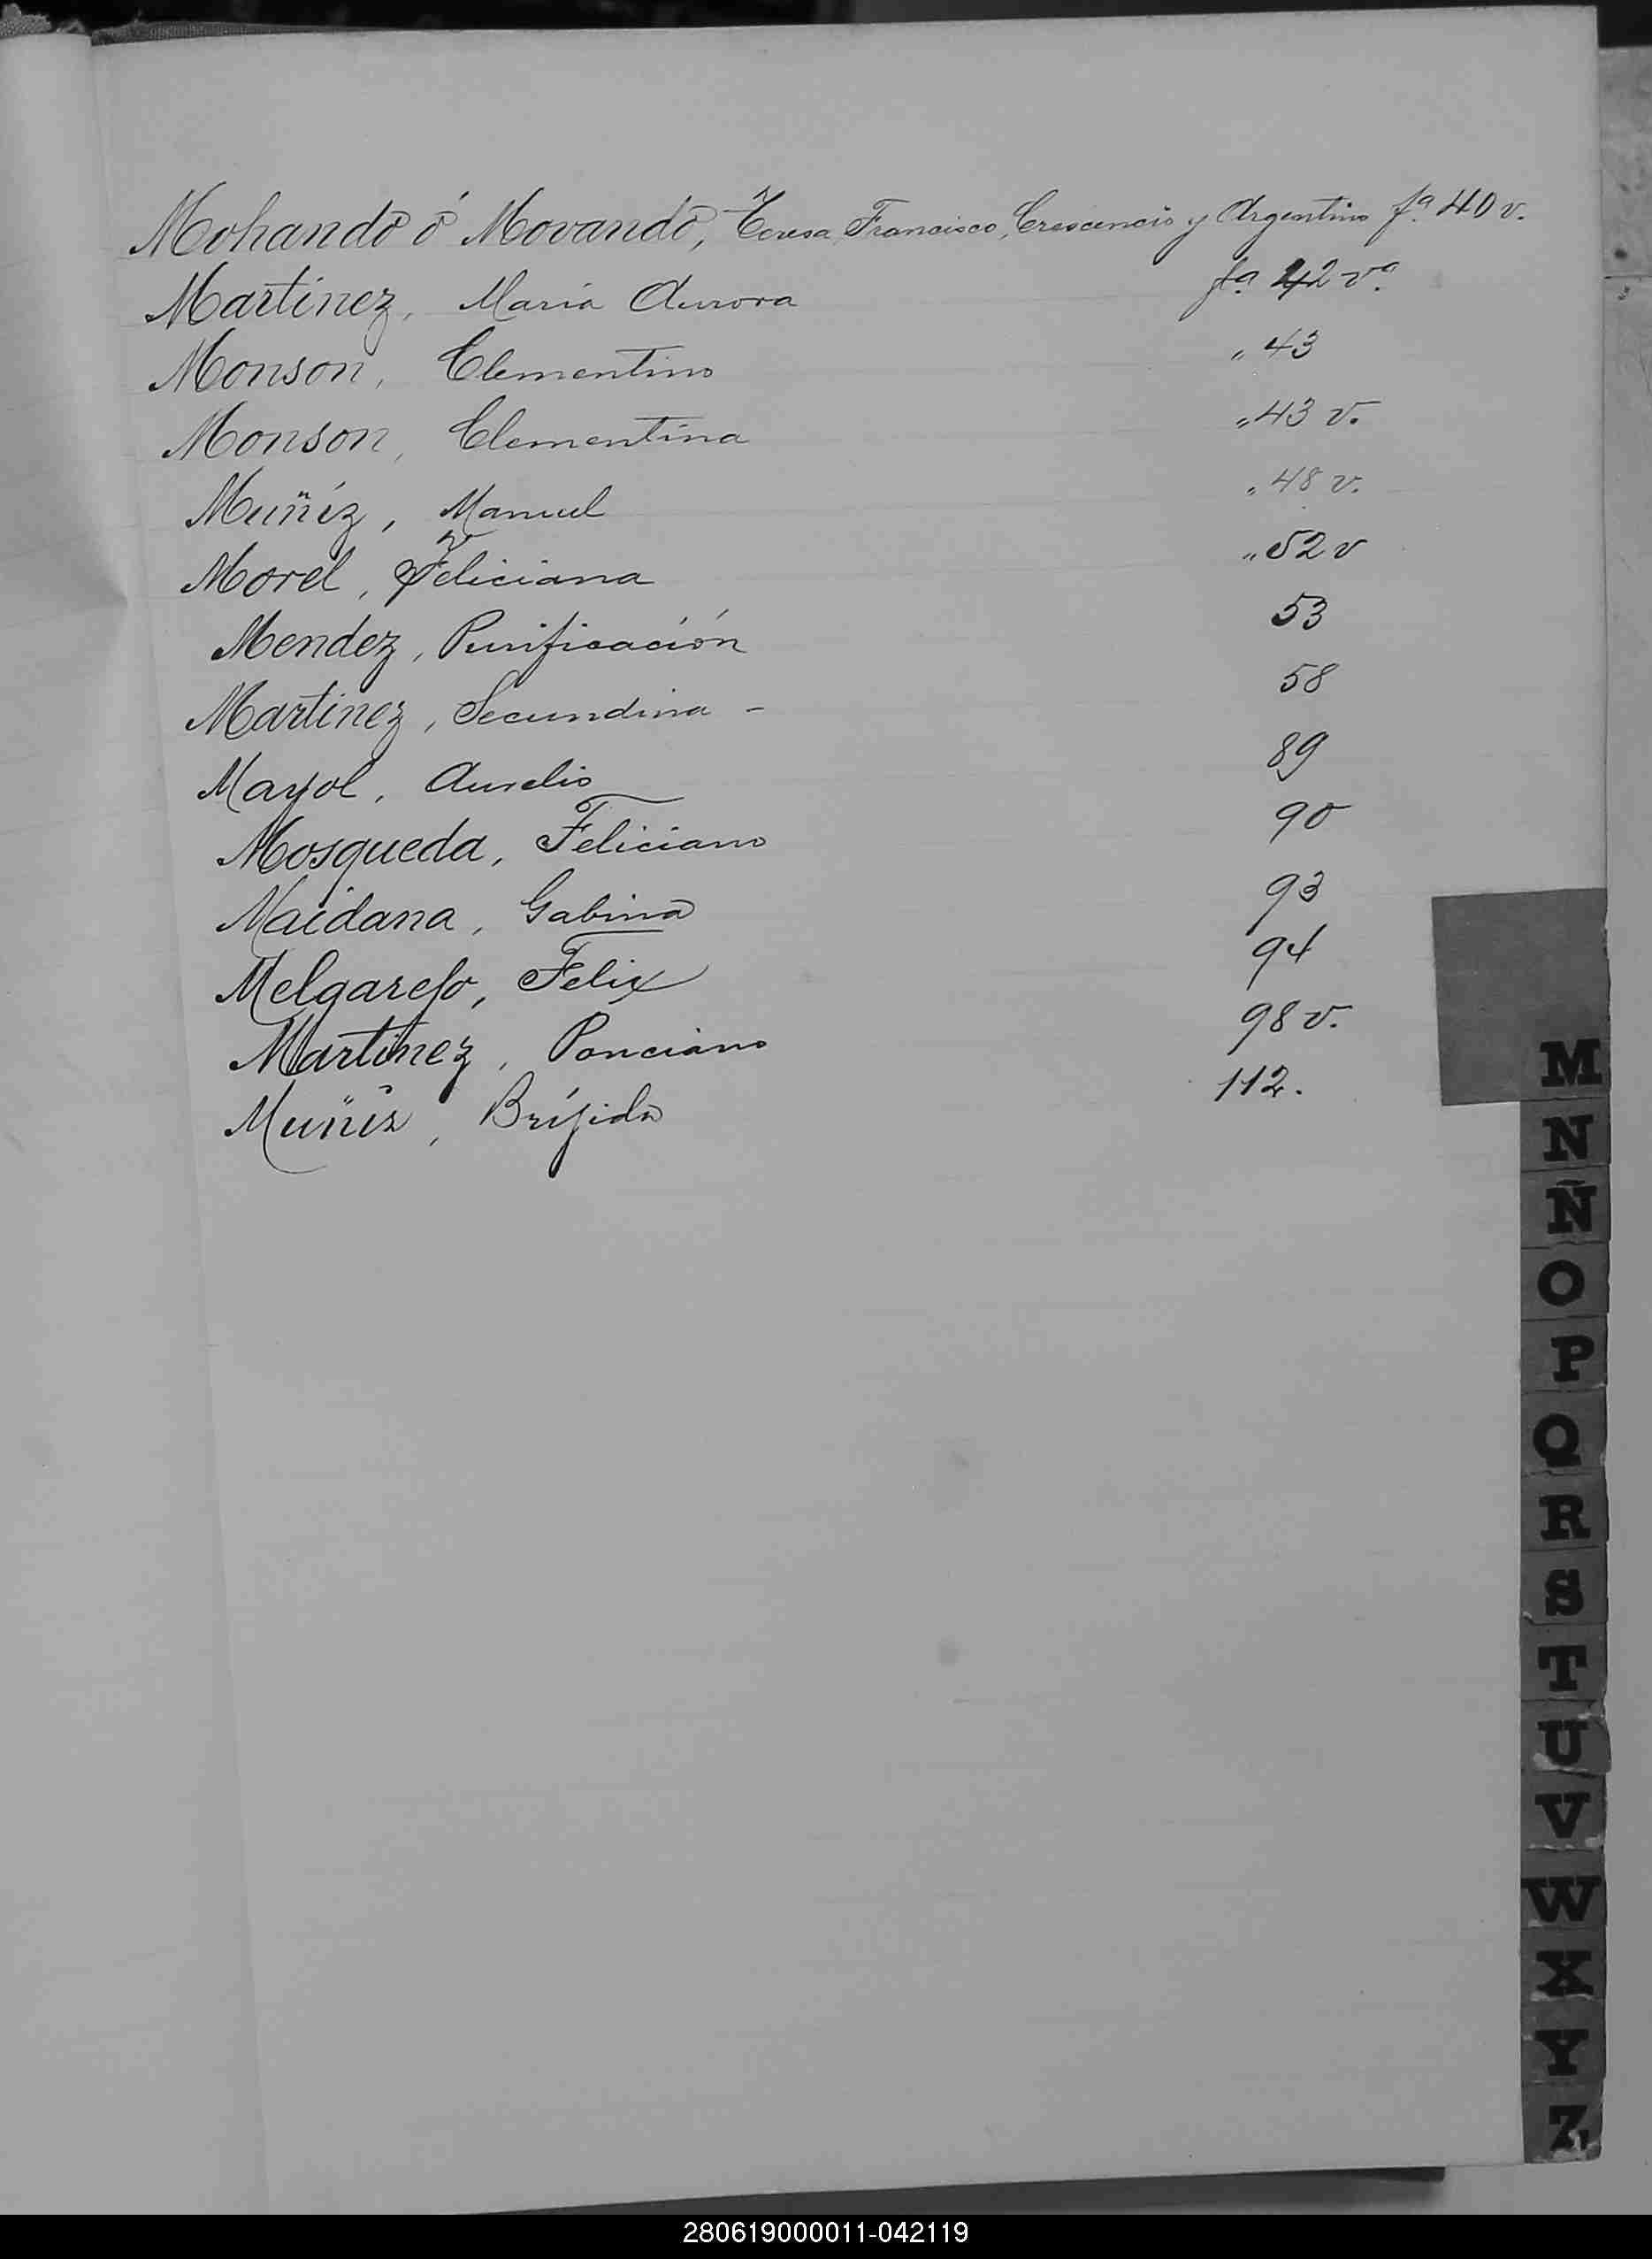 Mohando ó Movando, Teresa, Francisco, Crescencio y Argentino fª 40 v.
Martinez, Maria Aurora fª 42 vª.
Monson, Clementino " 43
Monson, Clementina " 43 v.
Muñiz, Manuel " 48 v.
Morel, Feliciana " 52 v
Mendez, Purificación 53
Martinez, Secundina - 58
Mayol, Aurelio 89
Mosqueda, Feliciano 90
Maidana, Gabina 93
Melgarejo, Felix 94
Martinez, Ponciano 98 v.
Muñiz, Bríjida 112.
M
N
Ñ
O
P
Q
R
S
T
U
V
W
X
Y
Z
280619000011-042119